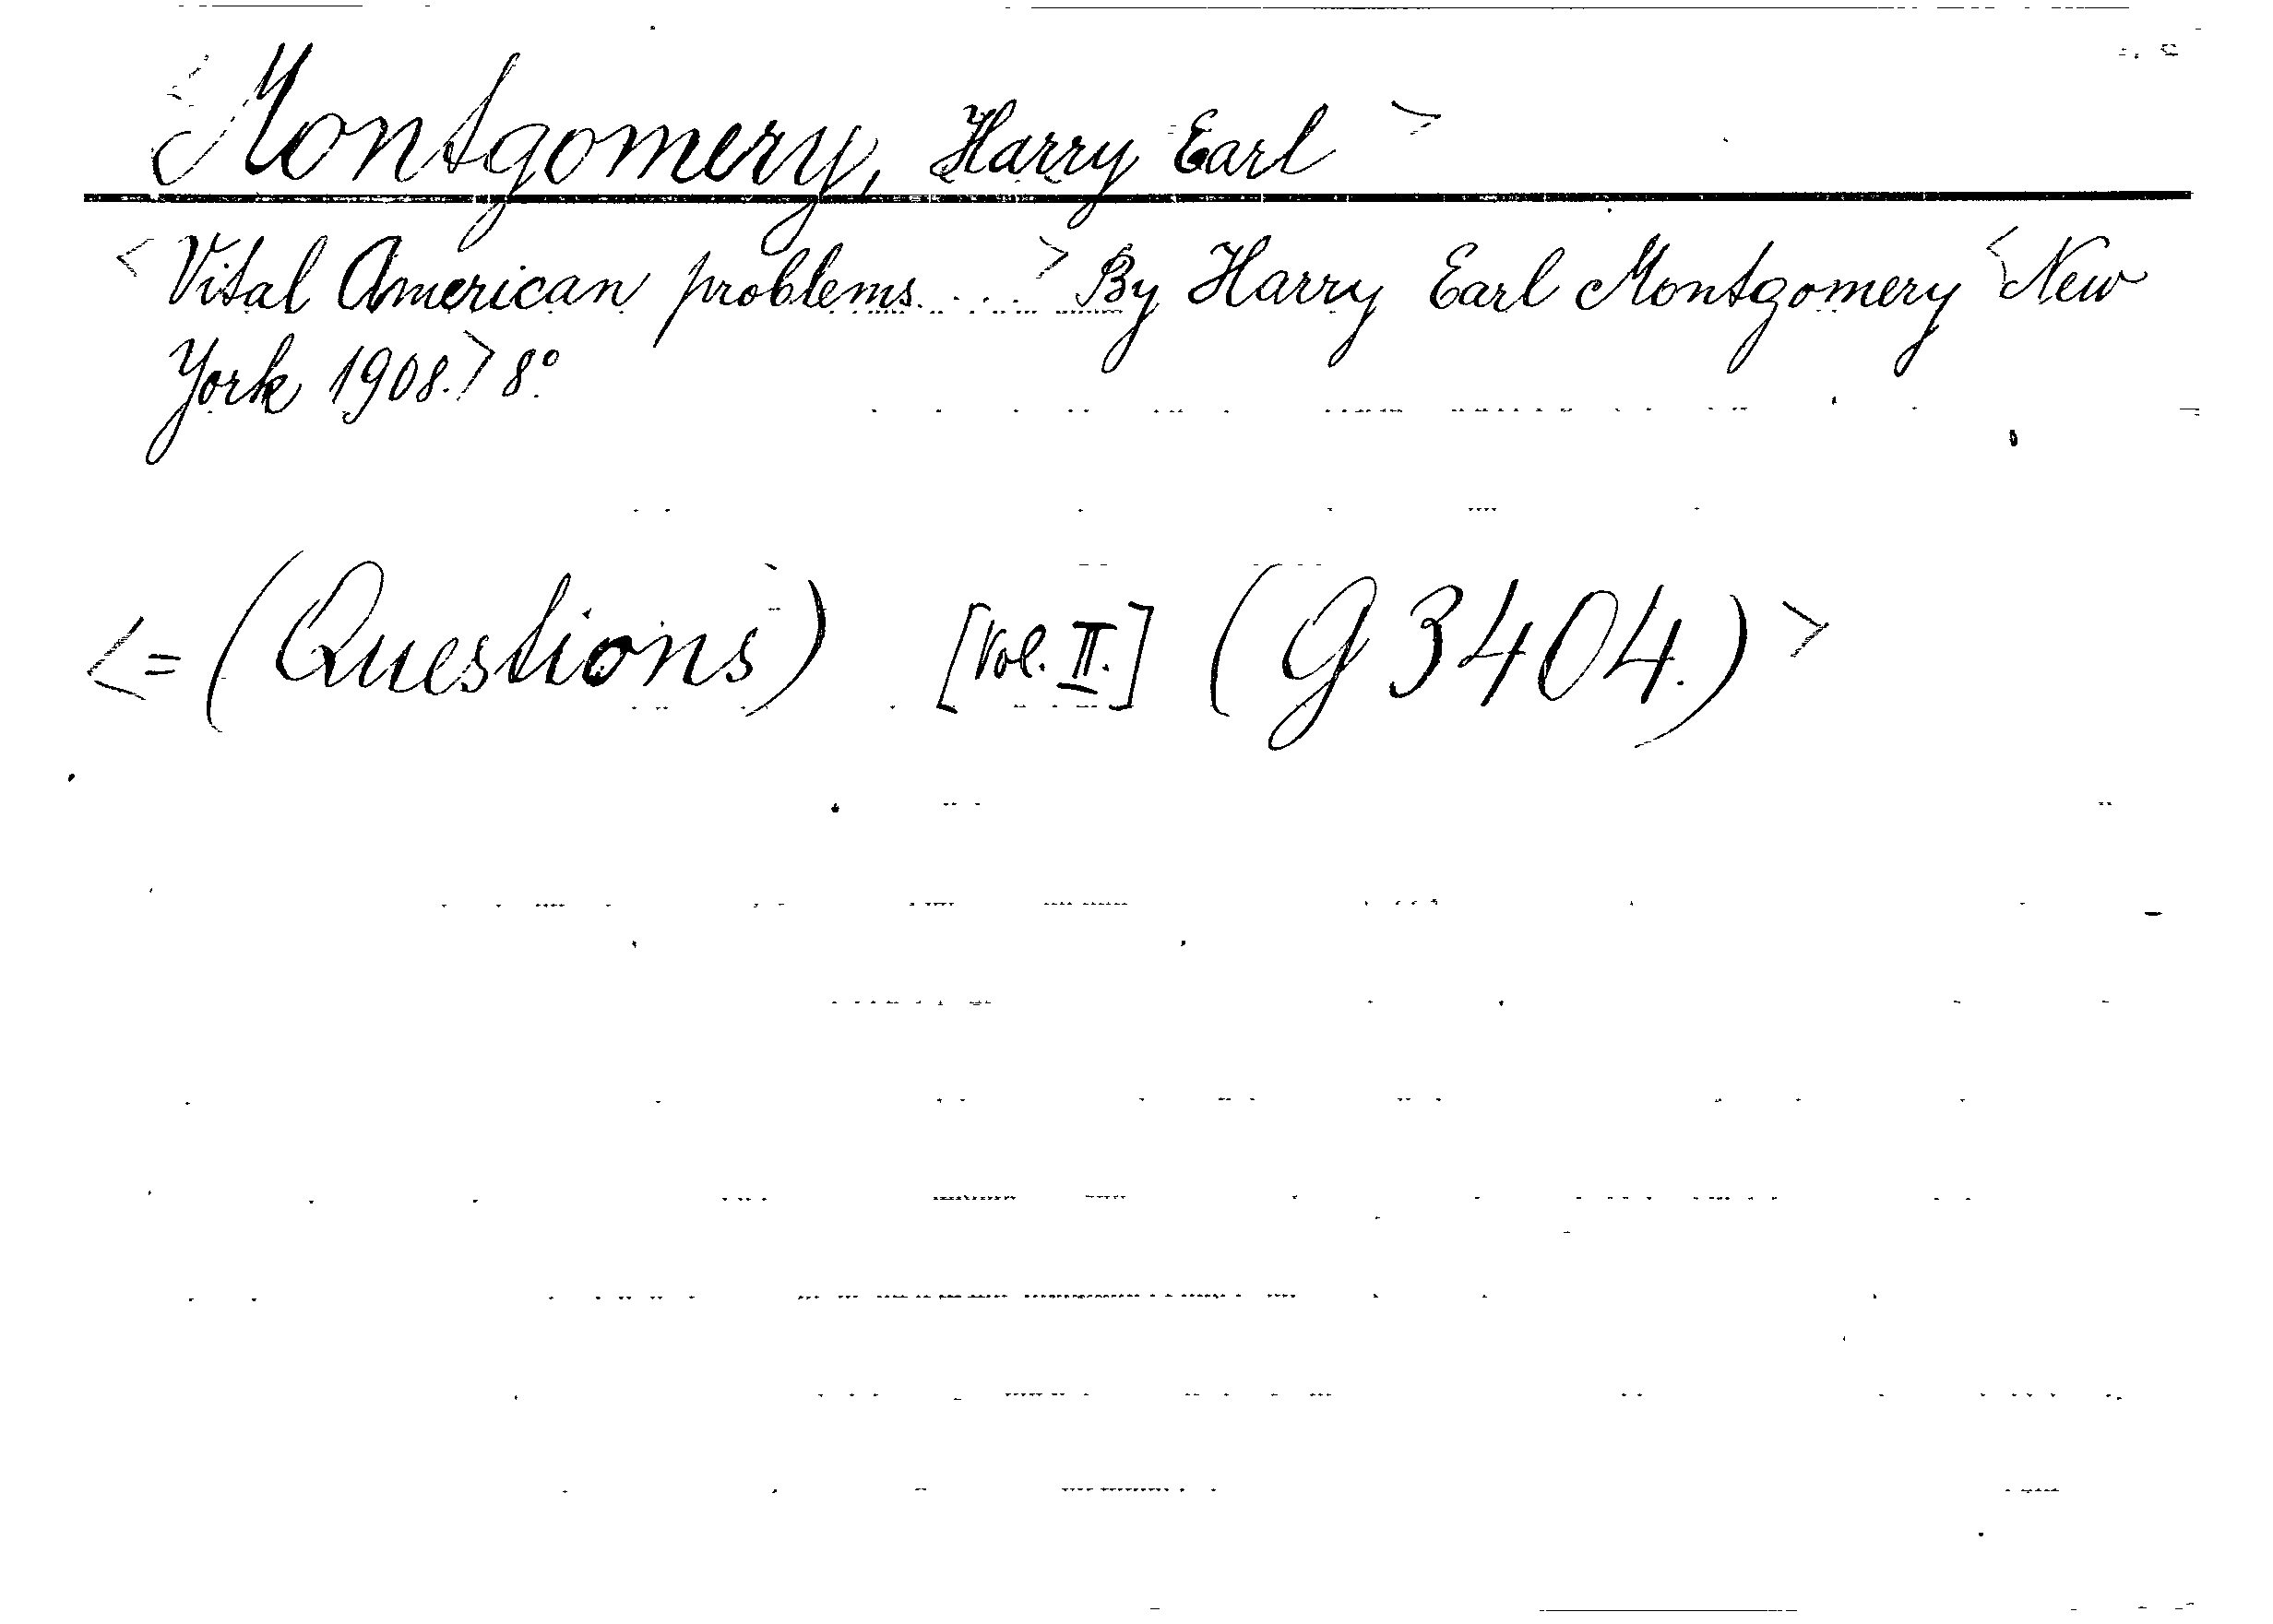 <Montgomery, Harry Earl>
<Vital American problems....> By Harry Earl Montgomery <New
York 1908.> 8º.
<=(Questions) [Vol. II.] (G 3404.)>